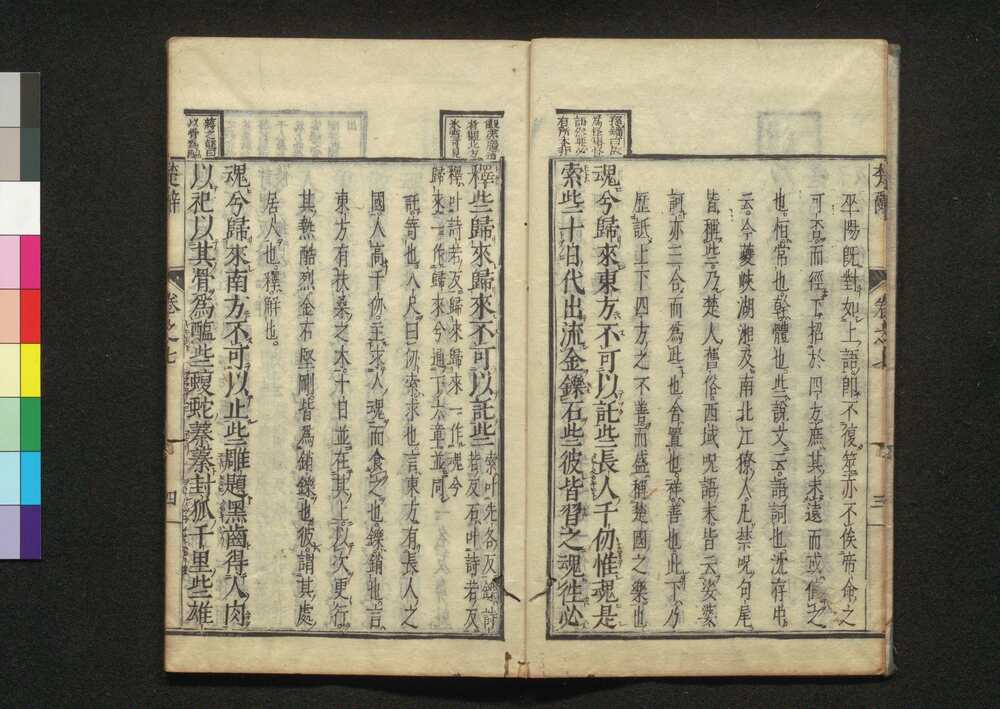 巫陽既對如上語即不復筮亦不俟帝命之
可否而徑下招於四方庶其未遠而或值之
也恒常也幹體也些說文云語詞也沈存中
云今夔峽湖湘及南北江獠人凡禁呪句尾
皆稱些乃楚人舊俗西域呪語末皆云娑婆
訶亦三合而為些也舍置也祥善也此下乃
歷詆上下四方之不善而盛稱楚國之樂也
魂兮歸來東方不可以託些長人千仞惟魂是
索些十日代出流金鑠石些彼皆習之魂往必
楚辭
卷之七
三
釋些歸來歸來不可以託些
索叶先各反鑠詩
若反石叶詩若反
釋叶詩若反歸來歸來一作魂兮
歸來一作歸來兮通下六章並同
託寄也八尺曰仞索求也言東方有長人之
國人高千仞主求人魂而食之也鑠銷也言
東方有扶桑之木十日並在其上以次更行
其熱酷烈金石堅剛皆為銷鑠也彼謂其處
居人也釋解也
魂兮歸來南方不可以止些雕題黑齒得人肉
以祀以其骨為醢些蝮蛇蓁蓁封狐千里些雄
楚辭
卷之七
四